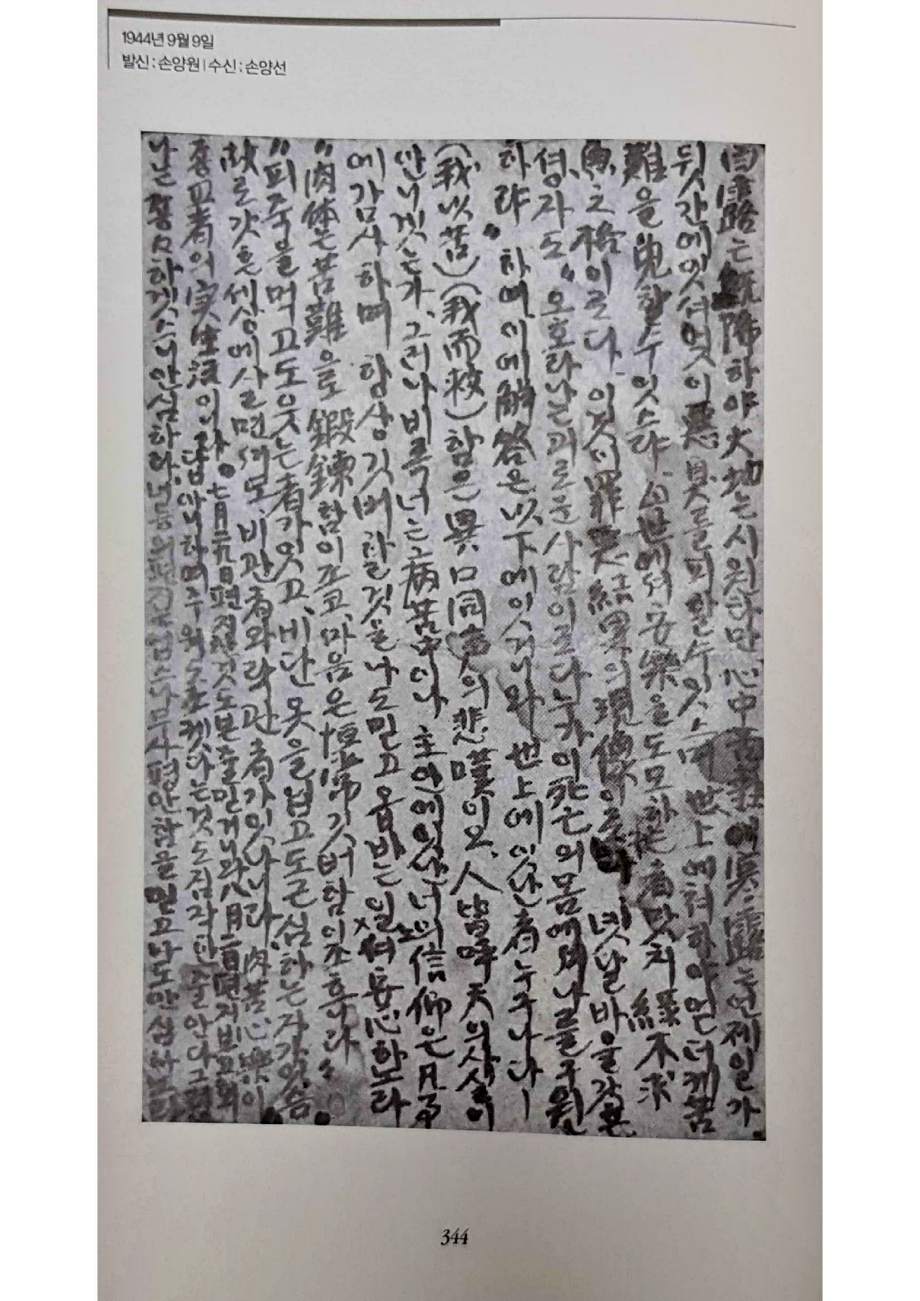 1944년 9월 9일
발신 : 손양원 | 수신 : 손양선
白露는 旣降하야 大地는 시원하만 心中苦熱에 寒露는 언제일가
뒷간에 잇서 엇이 惡臭를 피할 수 잇스며 世上에 처하야 엇더케 苦
難을 免할 수 잇스랴 苦世에서 安樂을 도모하는 者 맛치 緣木求
魚之格이로다 이것이 罪惡結果의 現像이로다 녯날 바울 갓흔
셩자도 "오호라 나는 괴로운 사람이로다 누가 이 死亡의 몸에서 나를 구원
하랴" 하며 이에 解答은 以下에 잇거니와 世上에 잇난 者 누구나 다
(我以苦) (我而救) 함은 異口同聲의 悲嘆이오, 人皆呼天의 사실이
안니겟는가, 그러나 비록 너는 그 病苦中이나 主 안에 잇난 너의 信仰은 凡事
에 감사하며 항상 깃버할 것을 나도 믿고 옵바는 일셔 安心하노라
"肉体는 苦難으로 鍛鍊함이 죠코 마음은 恒常 깃버함이 조흐니라"
"피죽을 먹고도 웃는 者가 잇고, 비단 옷을 닙고도 근심하는 자 잇음
故로 갓흔 셰상에 사르면셔도, 비관者와 락관者가 잇나니라 肉苦心樂이
宗敎者의 実生活이니라. 七月 卄九日 편지한 것도 본 줄 밋거니와 八月 三日 편지 보고 회
답 아니하며 주위
나날 하겟스니 안심하라, 너 편지 업스나 무사 평안함을 믿고 나도 안심하노라
344